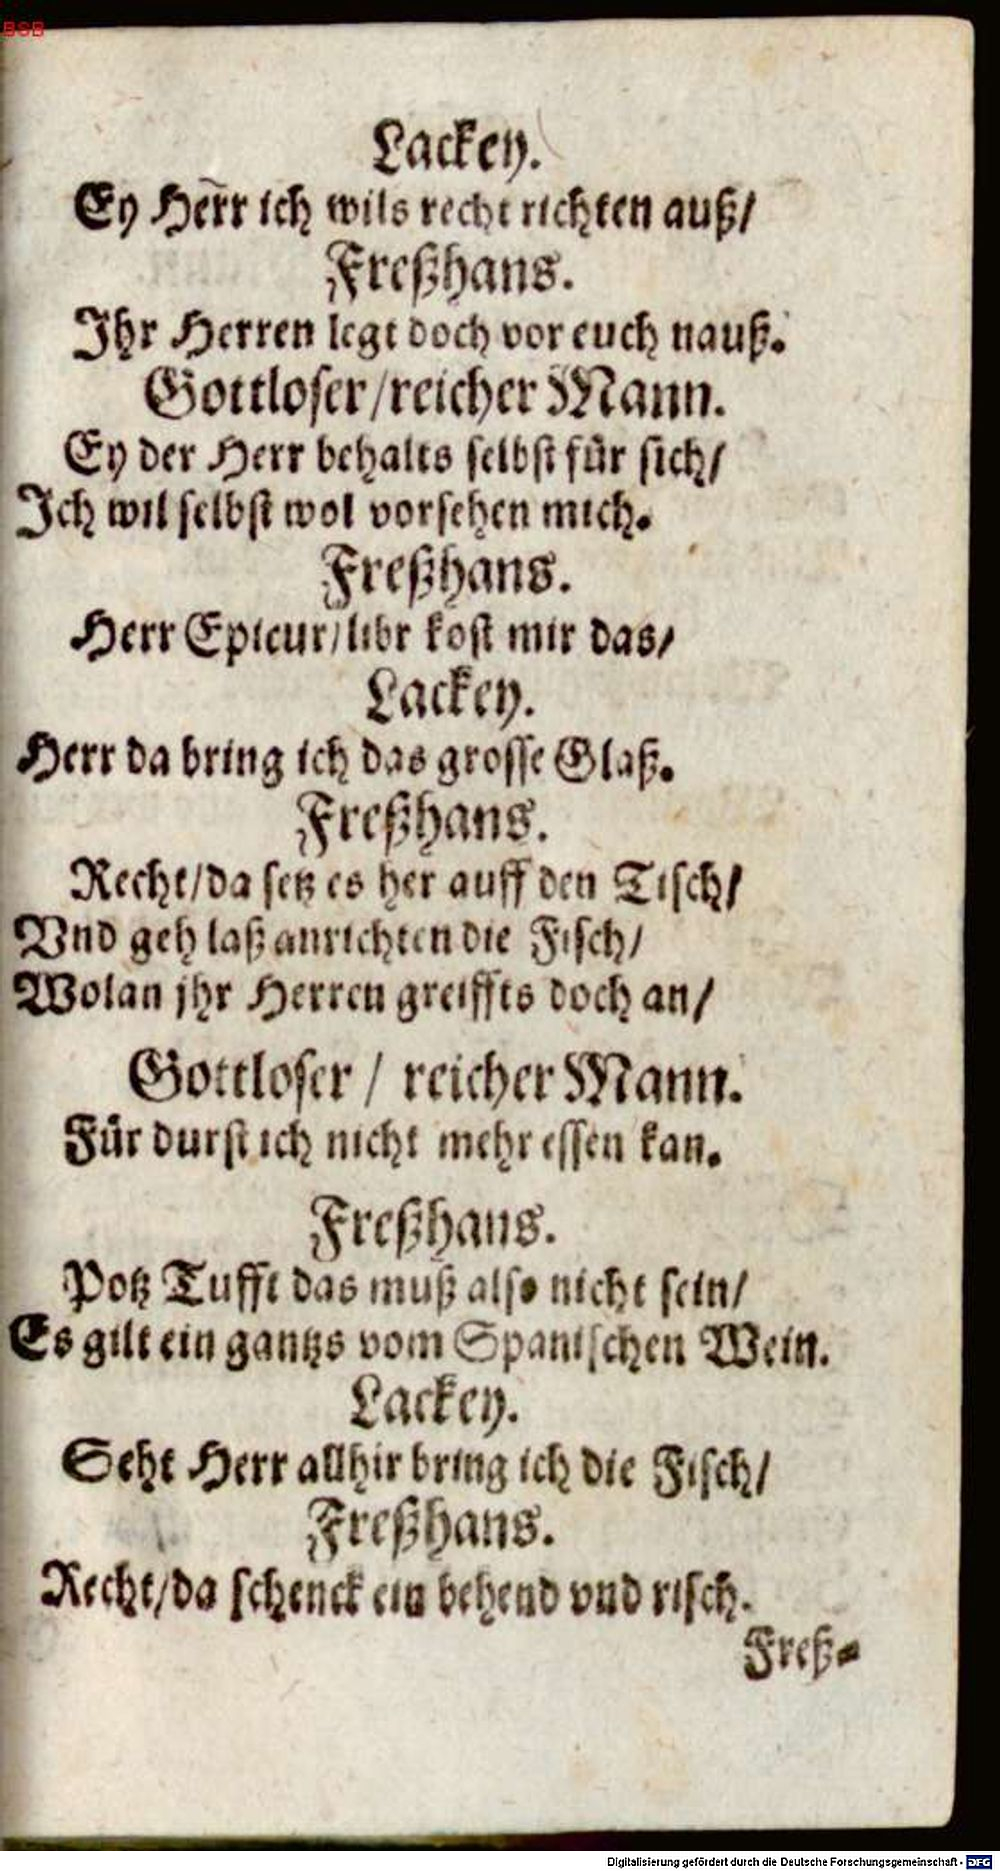 BSB
Lackey.
Ey Herr ich wils recht richten auß/
Freßhans.
Ihr Herren legt doch vor euch nauß.
Gottloser/reicher Mann.
Ey der Herr behalts selbst für sich/
Ich wil selbst wol vorsehen mich.
Freßhans.
Herr Epicur/libr kost mir das/
Lackey.
Herr da bring ich das grosse Glaß.
Freßhans.
Recht/da setz es her auff den Tisch/
Vnd geh laß anrichten die Fisch/
Wolan jhr Herren greiffts doch an/
Gottloser / reicher Mann.
Für durst ich nicht mehr essen kan.
Freßhans.
Potz Tufft das muß also nicht sein/
Es gilt ein gantzs vom Spanischen Wein.
Lackey.
Seht Herr allhir bring ich die Fisch/
Freßhans.
Recht/da schenck ein behend vnd risch.
Freß-
Digitalisierung gefördert durch die Deutsche Forschungsgemeinschaft - DFG